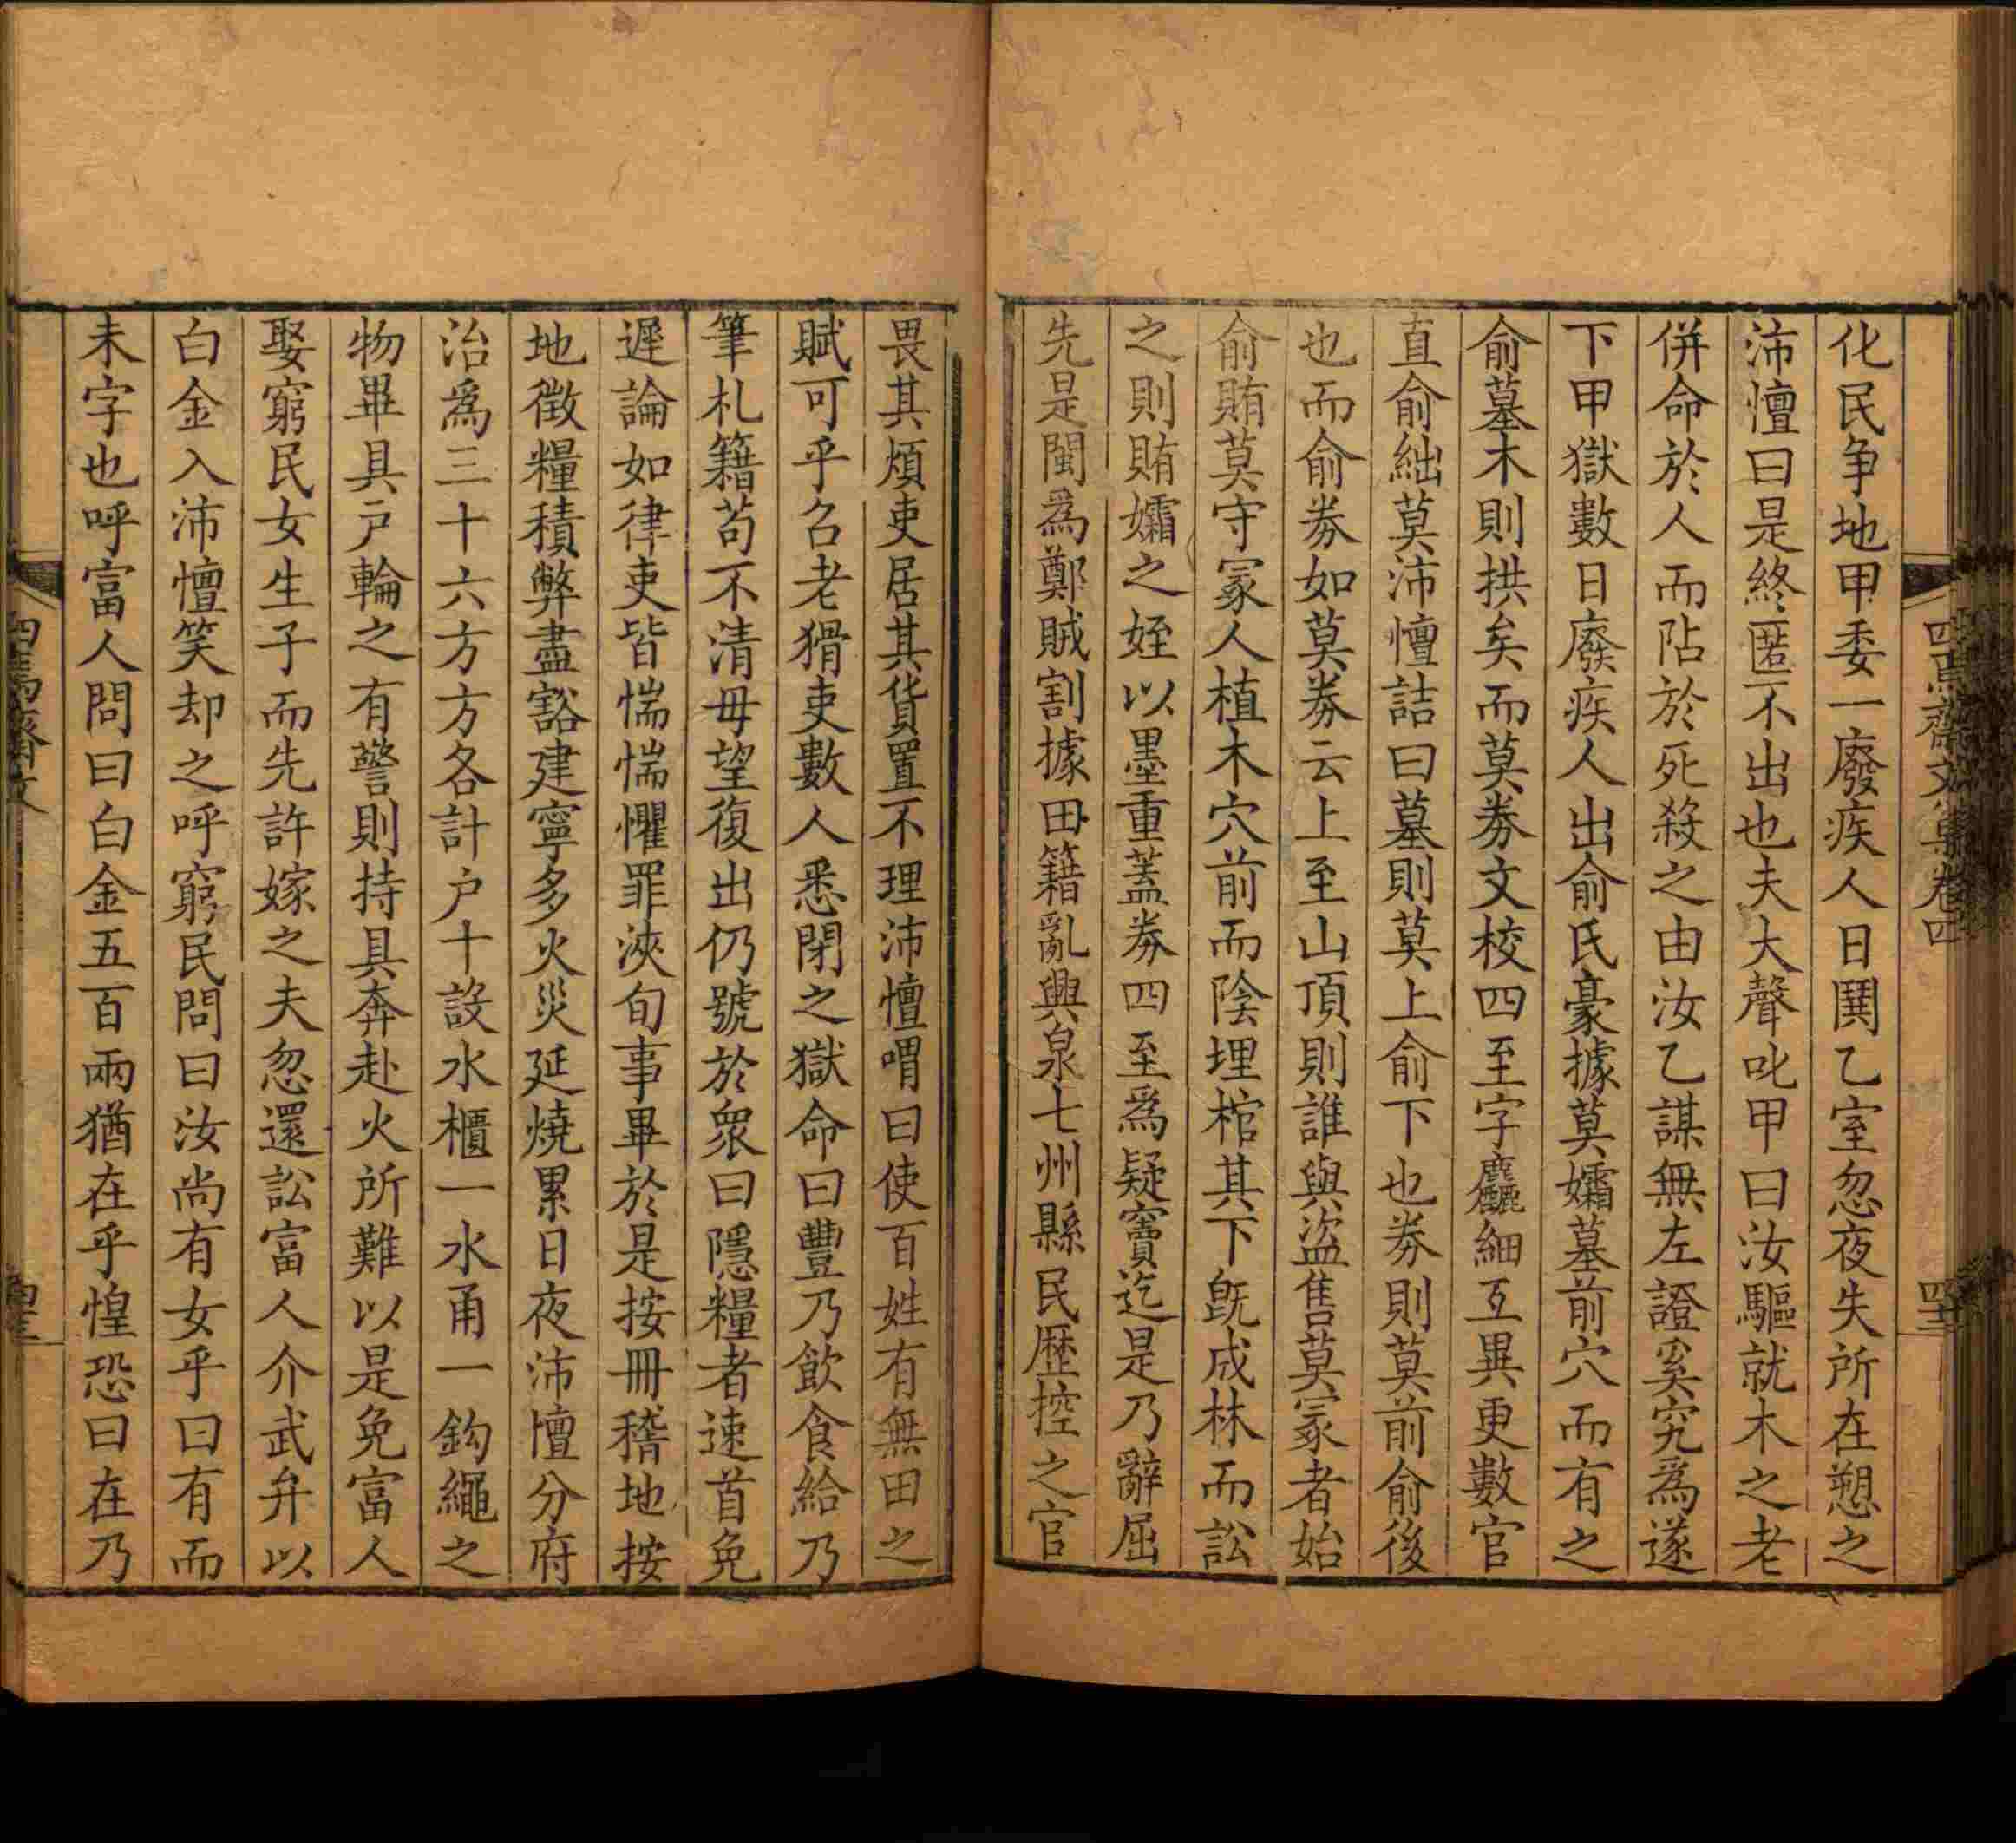 四焉齋文集卷四
化民争地甲委一廢疾人日鬨乙室忽夜失所在愬之
沛懀曰是終匿不出也夫大聲叱甲曰汝驅就木之老
併命於人而阽於死殺之由汝乙謀無左證奚究爲遂
下甲獄數日廢疾人出俞氏豪據莫孀墓前穴而有之
俞墓木則拱矣而莫券文校四至字麤細互異更數官
直俞絀莫沛懀詰曰墓則莫上俞下也券則莫前俞後
也而俞券如莫券云上至山頂則誰與盜售莫冢者始
俞賄莫守冢人植木穴前而陰埋棺其下旣成林而訟
之則賄孀之姪以墨重蓋券四至爲疑竇迄是乃辭屈
先是閩爲鄭賊割據田籍亂興泉七州縣民歷控之官
畏其煩吏居其貨置不理沛懀喟曰使百姓有無田之
賦可乎召老猾吏數人悉閉之獄命曰豐乃飲食給乃
筆札籍苟不清毋望復出仍號於衆曰隱糧者速首免
遲論如律吏皆惴惴懼罪浹旬事畢於是按冊稽地按
地徵糧積弊盡豁建寧多火災延燒累日夜沛懀分府
治爲三十六方方各計户十設水櫃一水甬一鈎繩之
物畢具户輪之有警則持具奔赴火所難以是免富人
娶窮民女生子而先許嫁之夫忽還訟富人介武弁以
白金入沛懀笑却之呼窮民問曰汝尚有女乎曰有而
未字也呼富人問曰白金五百兩猶在乎惶恐曰在乃